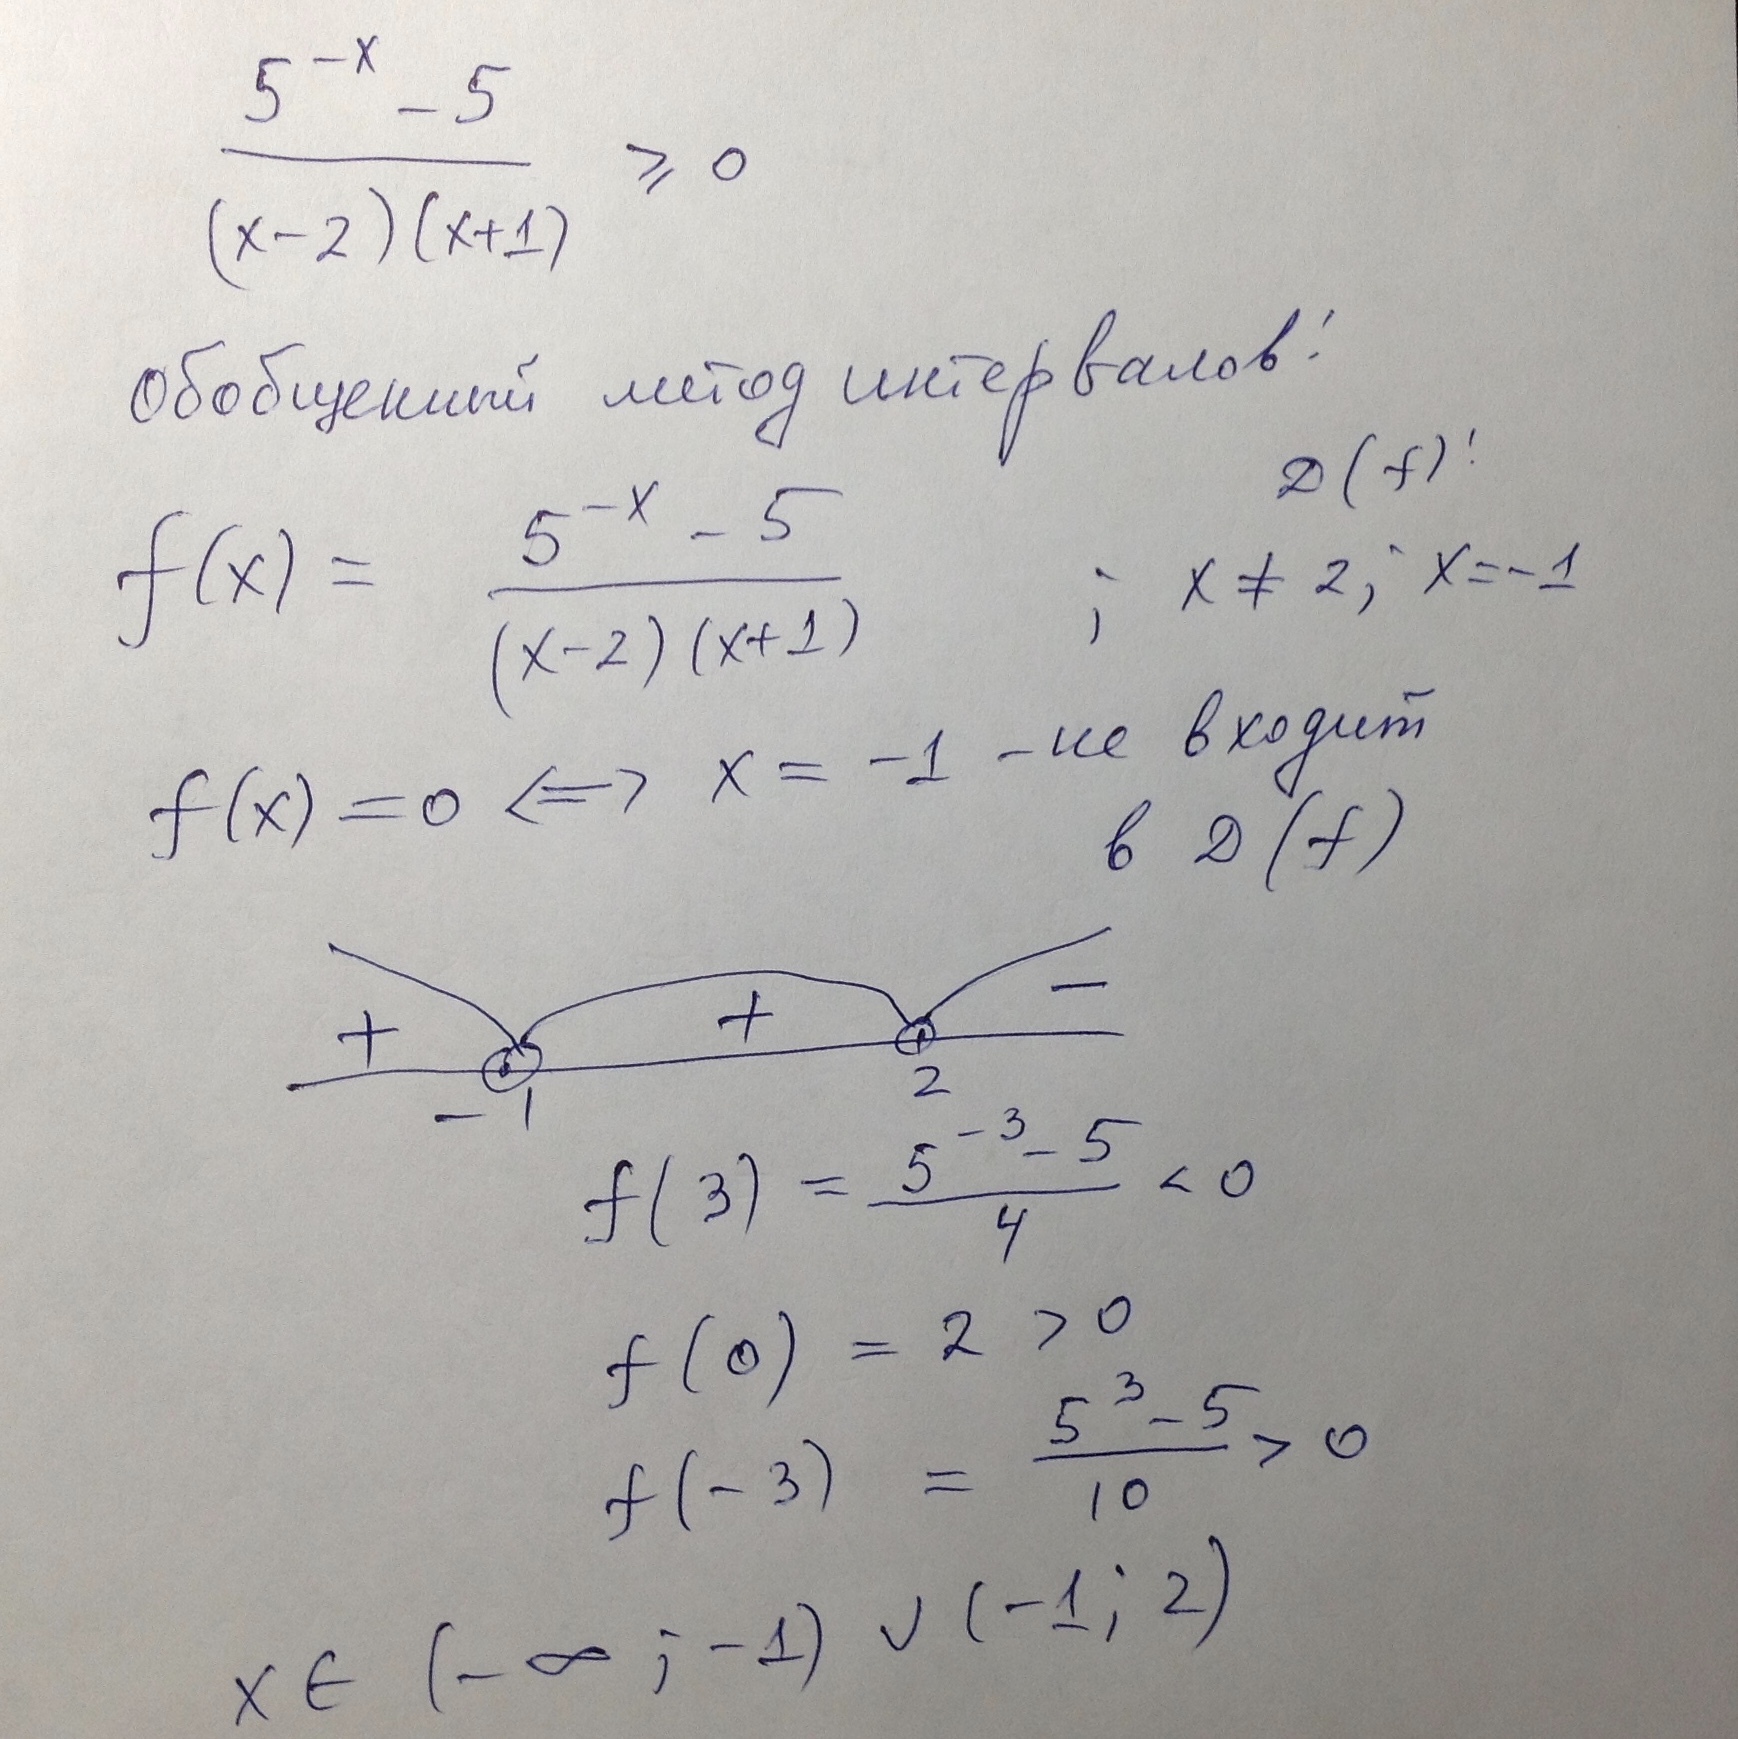 5^{-x} - 5
(x-2)(x+1)
⩾ 0
Обобщенный метод интервалов:
D(f):
f(x) = \frac{5^{-x} - 5}{(x-2)(x+1)} ; x ≠ 2; x = -1
f(x) = 0 <=> x = -1 - не входит
в D(f)
+ + -
-1 2
f(3) = \frac{5^{-3} - 5}{4} < 0
f(0) = 2 > 0
f(-3) = \frac{5^{3} - 5}{10} > 0
x ∈ (-∞; -1) ∪ (-1; 2)